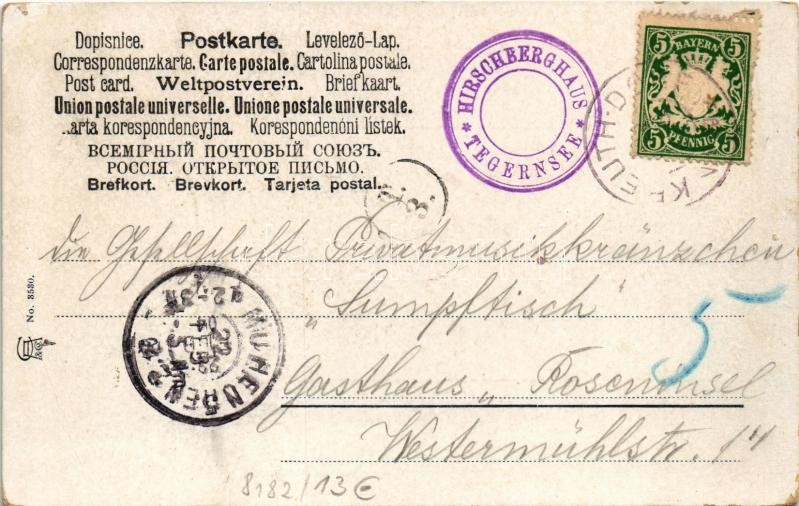 Dopisnice. Postkarte. Levelező-Lap.
Correspondenzkarte. Carte postale. Cartolina postale.
Post card. Weltpostverein. Briefkaart.
Union postale universelle. Unione postale universale.
Karta korespondencyjna. Korespondenční lístek.
ВСЕМІРНЫЙ ПОЧТОВЫЙ СОЮЗЪ.
РОССІЯ. ОТКРЫТОЕ ПИСЬМО.
Brefkort. Brevkort. Tarjeta postal.
* HIRSCHBERGHAUS *
TEGERNSEE
5 BAYERN 5
5 PFENNIG 5
KREUTH
die Gesellschaft Privatmusikkränzchen
„Sumpftisch"
Gasthaus „Roseninsel
Westermühlstr. 14
5
MUENCHEN
No. 3530.
8182/13€